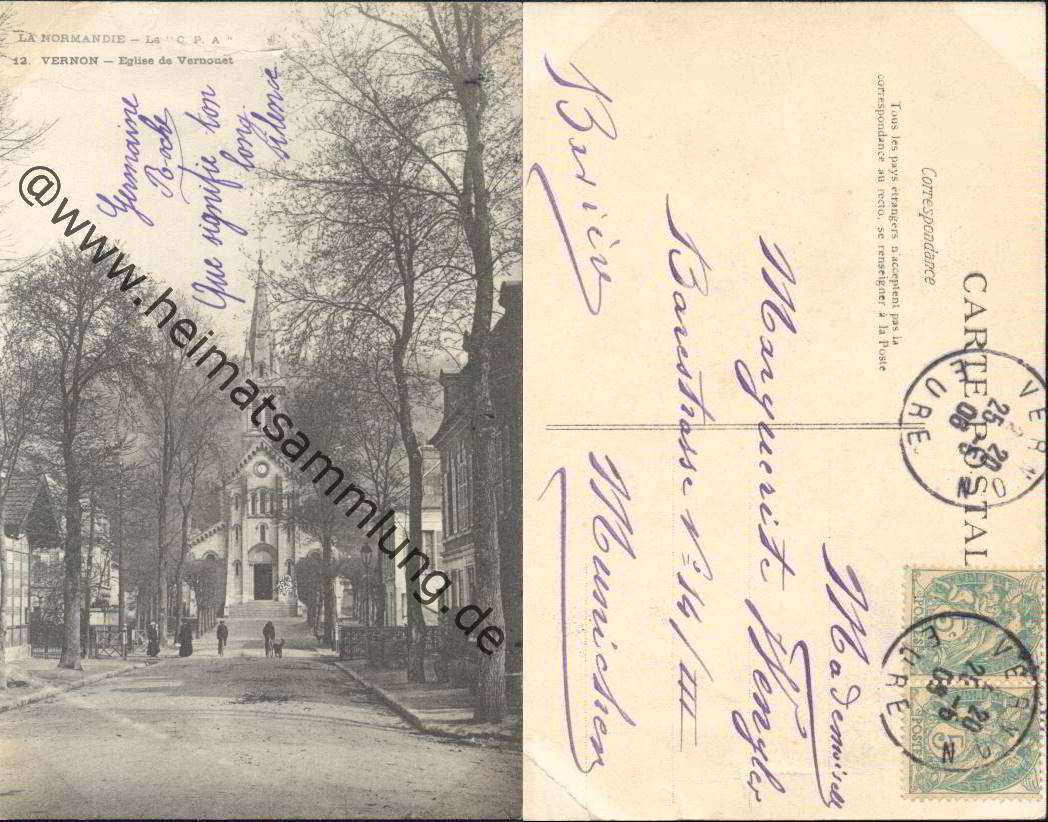 LA NORMANDIE — La "C. P. A"
12. VERNON — Eglise de Vernonet
Germaine
Roche
Que signifie ton
long
silence
@www.heimatsammlung.de
CARTE POSTALE
Correspondance
Tous les pays étrangers n'acceptent pas la
correspondance au recto, se renseigner à la Poste
Mademoiselle
Marguerite Wengler
Baaderstrasse No 54/III
Munichen
Bavière
VERNON
EURE
VERNON
EURE
POSTES
POSTES